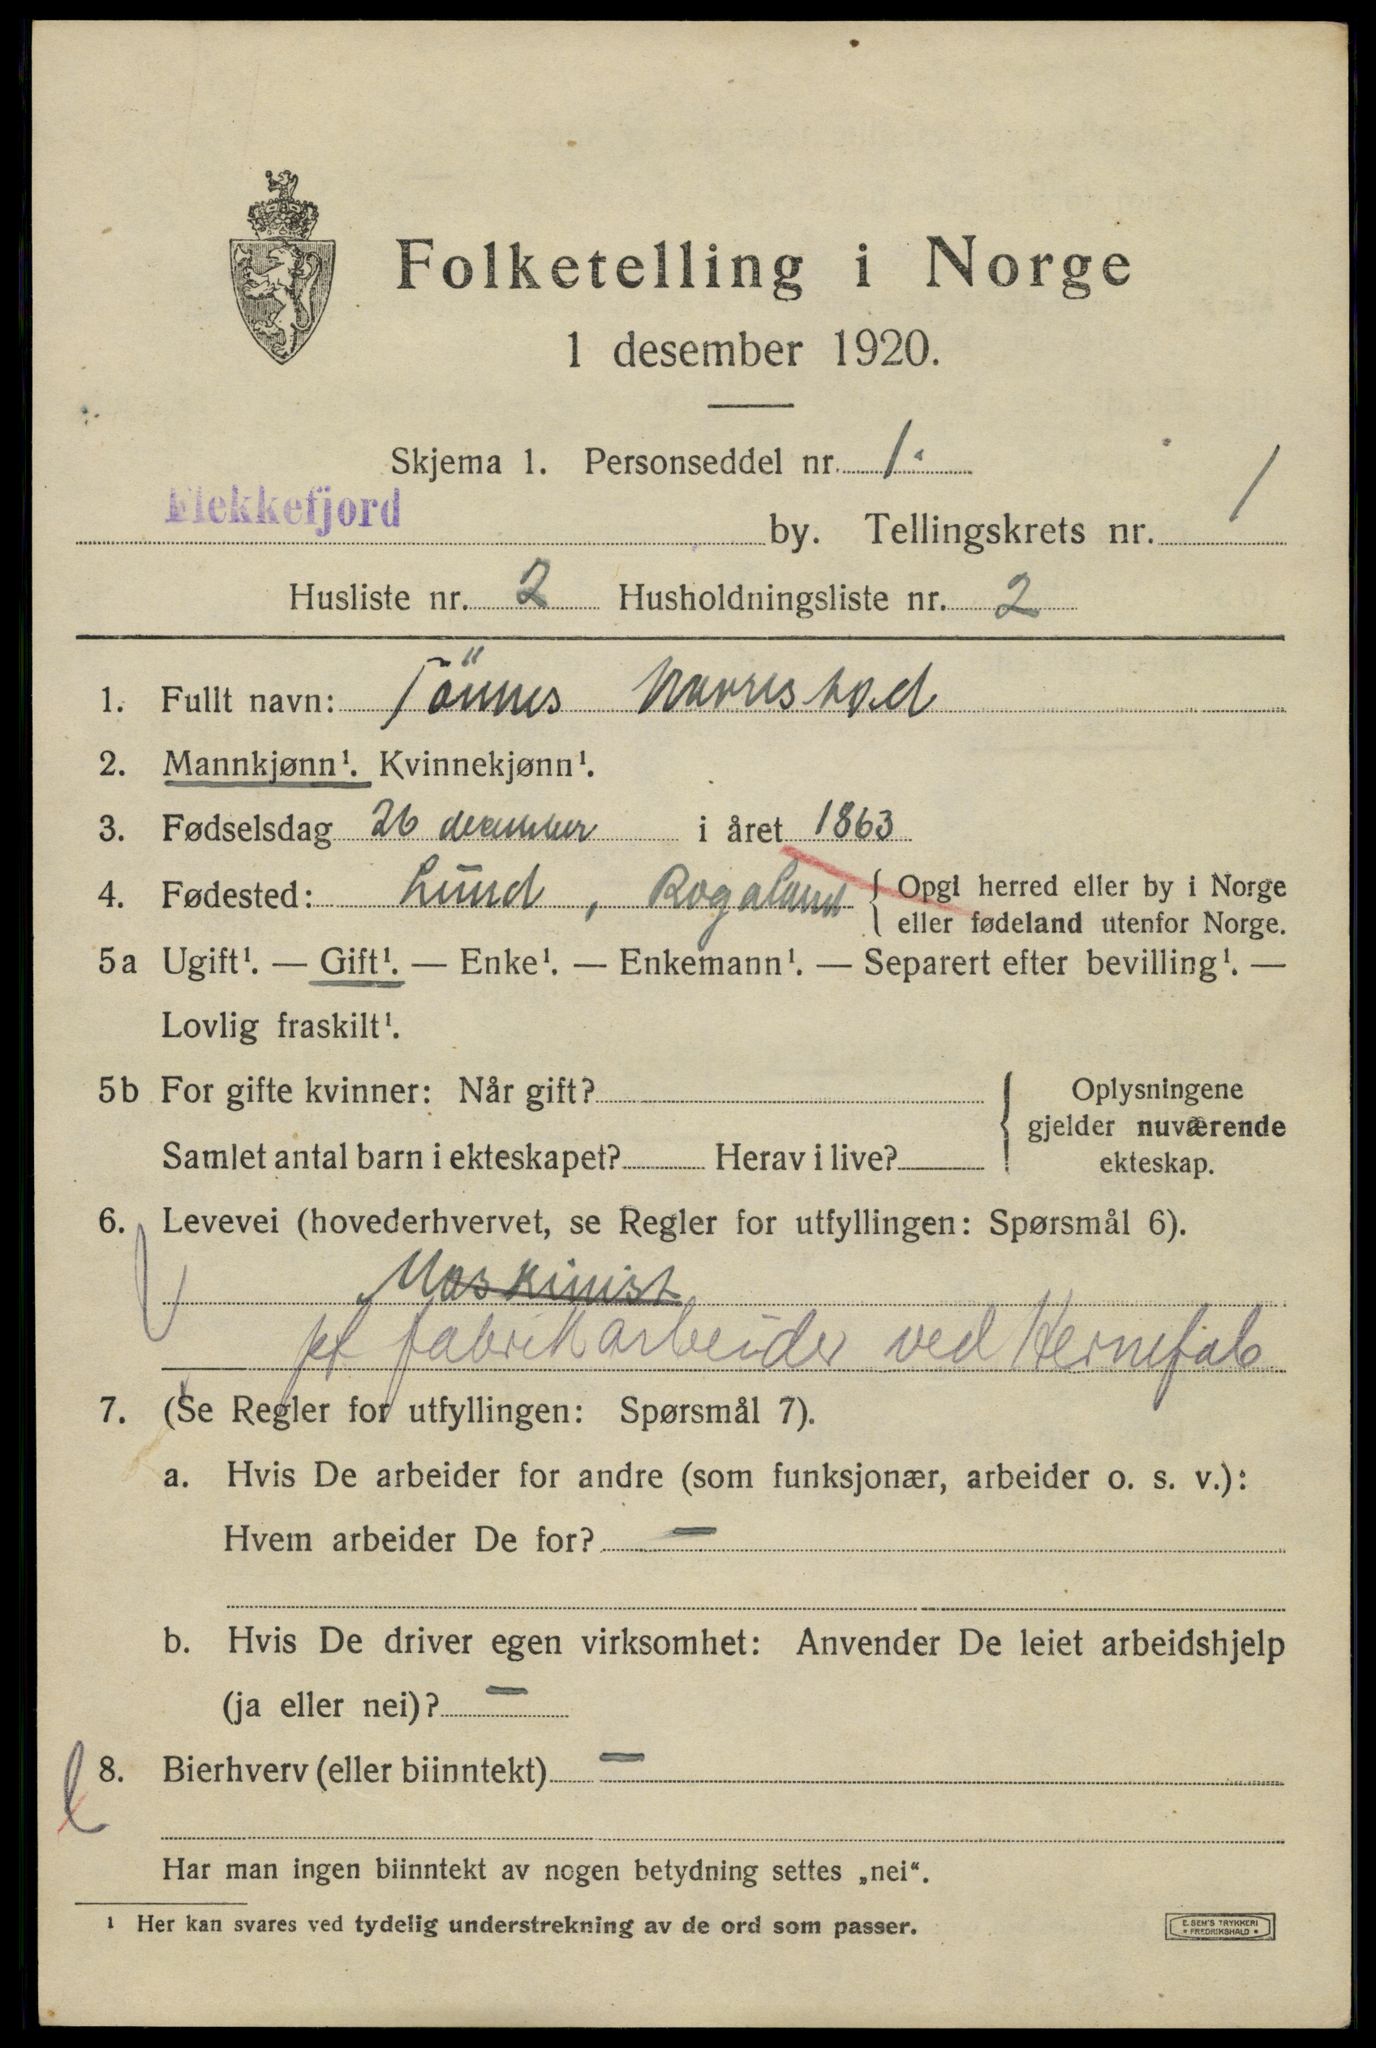 Folketelling i Norge
1 desember 1920.
Skjema 1. Personseddel nr. 1.
Flekkefjord by. Tellingskrets nr. 1
Husliste nr. 2 Husholdningsliste nr. 2
1. Fullt navn: Tönnes
2. Mannkjønn¹. Kvinnekjønn¹.
3. Fødselsdag 26 december i året 1863
4. Fødested: Lund, Rogaland { Opgi herred eller by i Norge
eller fødeland utenfor Norge.
5a Ugift¹. — Gift¹. — Enke¹. — Enkemann¹. — Separert efter bevilling¹. —
Lovlig fraskilt¹.
5b For gifte kvinner: Når gift?
Samlet antal barn i ekteskapet? Herav i live?
{ Oplysningene
gjelder nuværende
ekteskap.
6. Levevei (hovederhvervet, se Regler for utfyllingen: Spørsmål 6).
Maskinist
fabrikkarbeider ved
7. (Se Regler for utfyllingen: Spørsmål 7).
a. Hvis De arbeider for andre (som funksjonær, arbeider o. s. v.):
Hvem arbeider De for? —
b. Hvis De driver egen virksomhet: Anvender De leiet arbeidshjelp
(ja eller nei)? —
8. Bierhverv (eller biinntekt) —
Har man ingen biinntekt av nogen betydning settes „nei“.
¹ Her kan svares ved tydelig understrekning av de ord som passer.
E. SEM'S TRYKKERI
* FREDRIKSHALD *